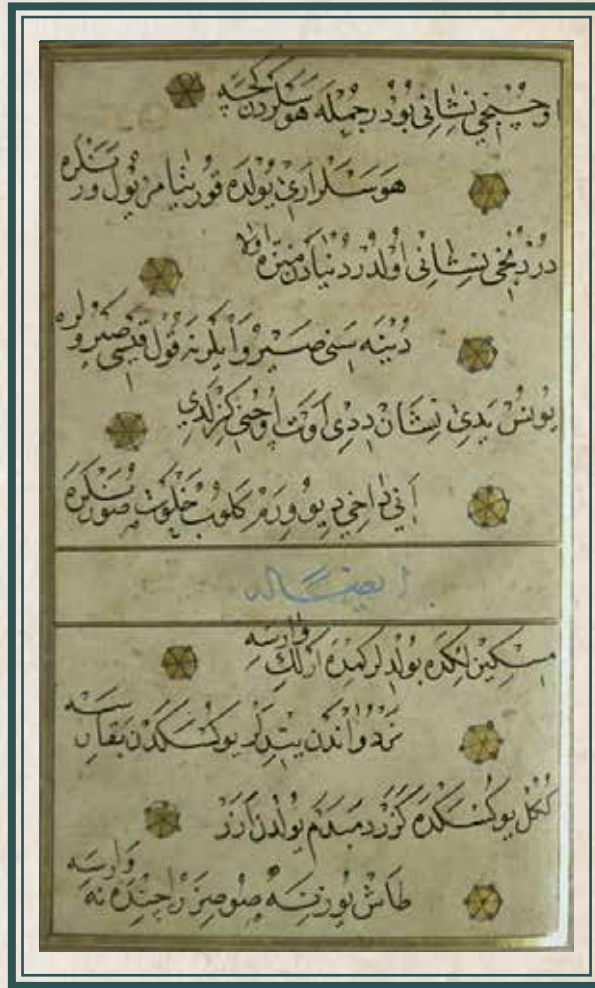 اوچنجي نشاني بودر جمله هوسلردن كچه
هوسلر ارى يولده قور يتامز يول ورنلره
دردنجي نشاني اولدر دنيادن منزه اولا
دنيه سني صيرو ايلر نه قول صيرولره
يونس يدى نشان ددى اوت اوچني كزلدي
اني داخي ديوورم كلوب خلوت صورنلره
ايضا له
مسكين لكده بولدلر كمده ارلك وارسه
نردواندن يتدلر يوكسكدن بقارسه
كنكل يوكسكده كزر دمبدم يولدن ازر
طاش يوزينه صو صزر ايچنده نه وارسه